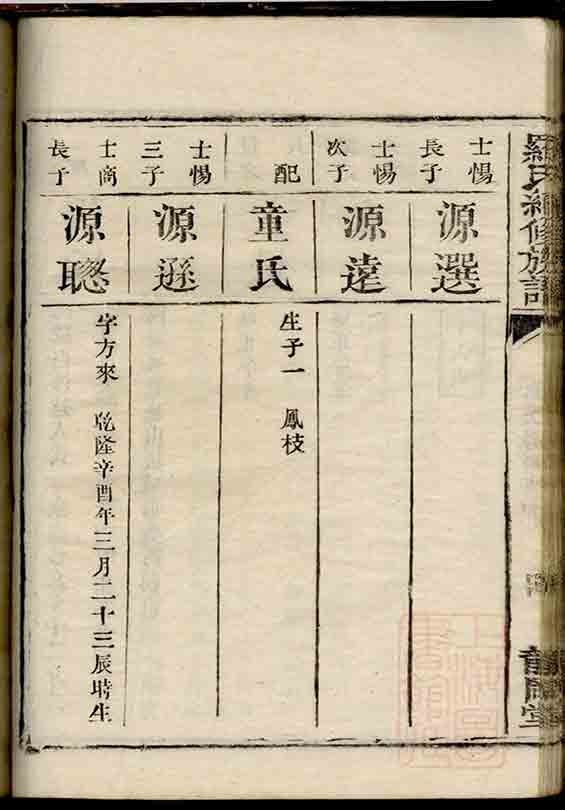 羅氏續修族譜
士惕
長子
源選
士惕
次子
源遠
配
童氏
生子一 鳳枝
士惕
三子
源遜
士商
長子
源聰
字方來 乾隆辛酉年三月二十三辰時生